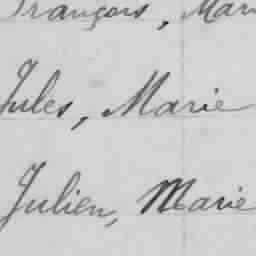 François, Mari
Jules, Marie
Julien, Marie